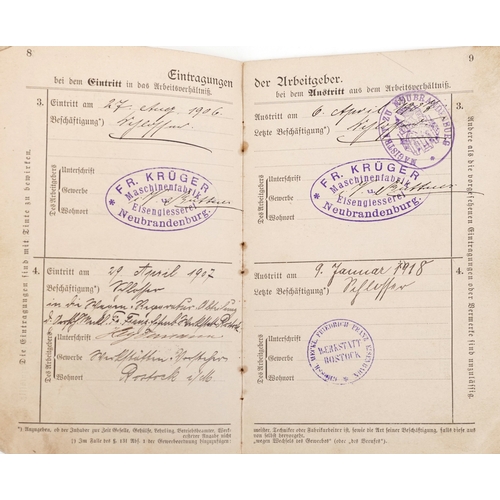 8
Eintragungen
bei dem Eintritt in das Arbeitsverhältniß.
3. Eintritt am 27. Aug. 1906
Beschäftigung*) Schlosser
Des Arbeitgebers
Unterschrift
Gewerbe
Wohnort
* FR. KRÜGER *
Maschinenfabrik
Eisengiesserei
Neubrandenburg.
4. Eintritt am 29 April 1907
Beschäftigung*) Schlosser
in die Wagen
Rostock
Des Arbeitgebers
Unterschrift
Gewerbe Werkstätten Vorsteher
Wohnort Rostock i/M.
Die Eintragungen sind mit Tinte zu bewirken.
*) Anzugeben, ob der Inhaber zur Zeit Geselle, Gehülfe, Lehrling, Betriebsbeamter, Werk-
† Im Falle des § 131 Abs. 1 der Gewerbeordnung hinzuzufügen:
9
der Arbeitgeber.
bei dem Austritt aus dem Arbeitsverhältniß.
Austritt am 6. April 1907 3.
Letzte Beschäftigung*) Schlosser
MAGISTRAT ZU NEUBRANDENBURG
Des Arbeitgebers
Unterschrift
Gewerbe
Wohnort
* FR. KRÜGER *
Maschinenfabrik
Eisengiesserei
Neubrandenburg.
Austritt am 9. Januar 1918 4.
Letzte Beschäftigung*) Schlosser
Des Arbeitgebers
Unterschrift
Gewerbe
Wohnort
GROSSH. MECKL. FRIEDRICH FRANZ EISENBAHN
WERKSTATT
ROSTOCK
Andere als die vorgesehenen Eintragungen oder Vermerke sind unzulässig.
meister, Techniker oder Fabrikarbeiter ist, sowie die Art seiner Beschäftigung, falls diese aus
„wegen Wechsels des Gewerbes“ (oder „des Berufes“).